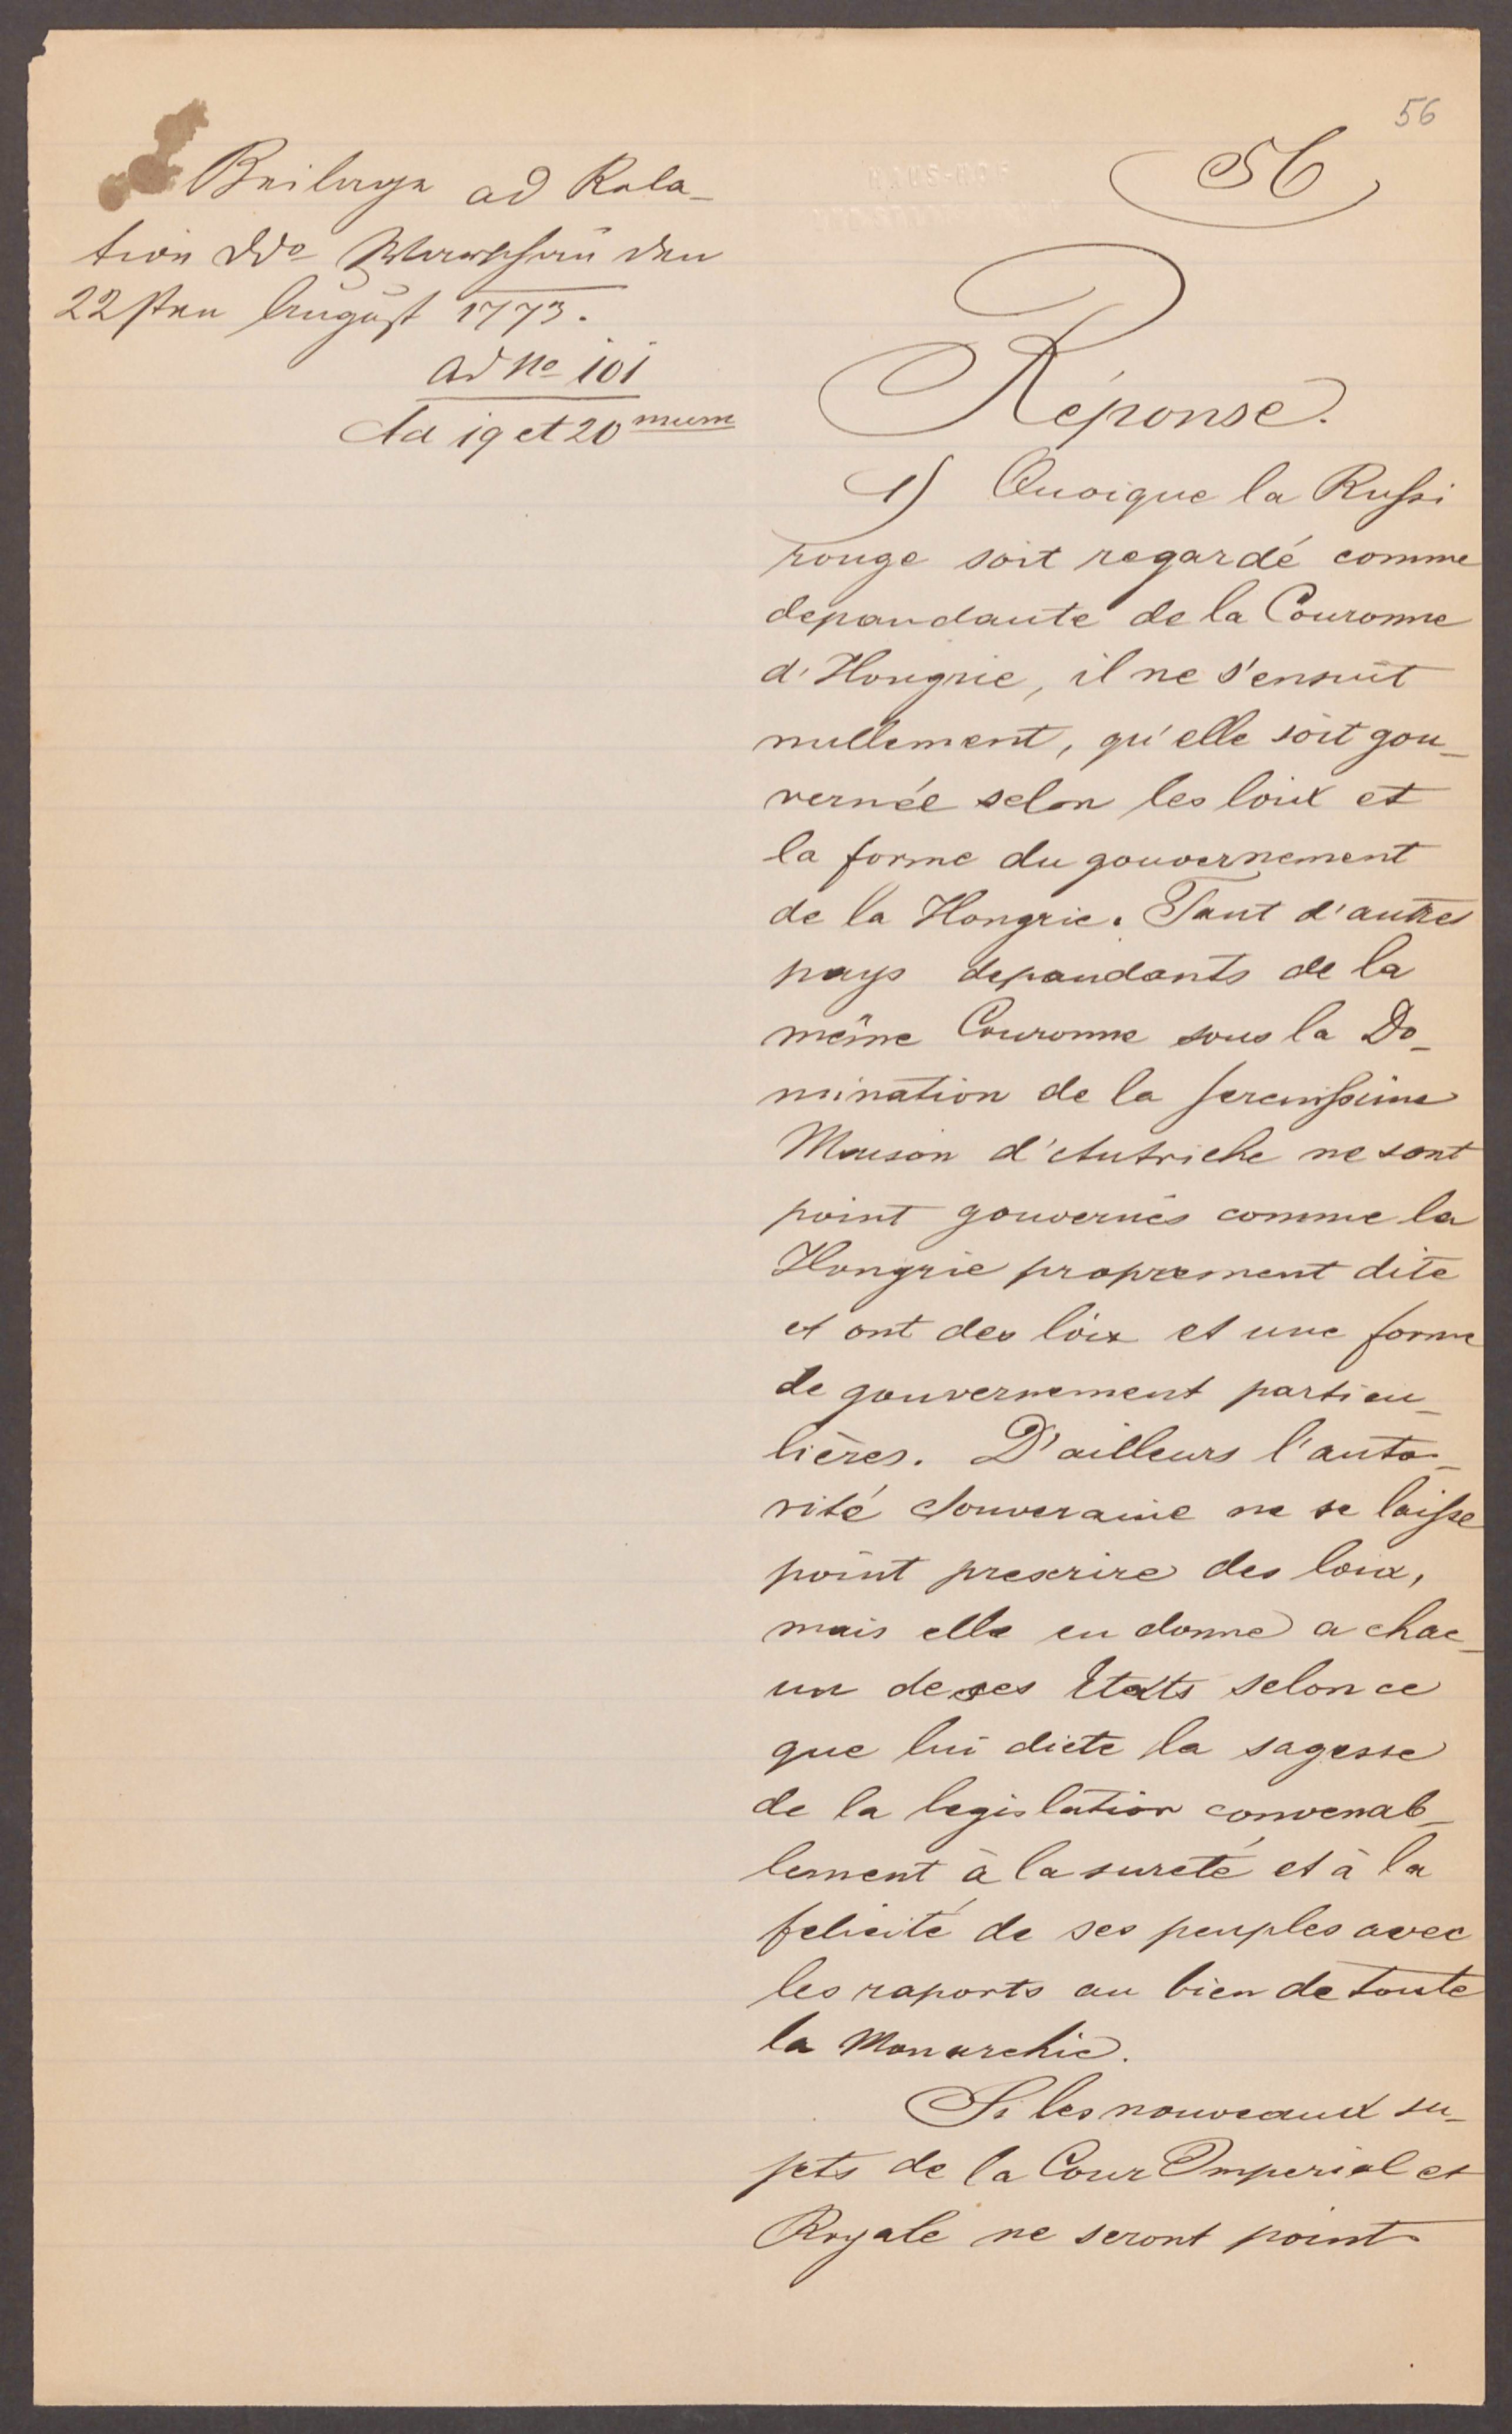 56
56
Beilage ad Rela-
tion dd° Warschau den
22sten August 1773.
ad No 101
Ad 19 et 20 mum
Réponse.
1) Quoique la Russi
rouge soit regardé comme
depandante de la Couronne
d'Hongrie, il ne s'ensuit
nullement, qu'elle soit gou-
vernée selon les loix et
la forme du gouvernement
de la Hongrie. Tant d'autres
pays depandants de la
même Couronne sous la Do-
mination de la serenissime
Maison d'Autriche ne sont
point gouvernés comme la
Hongrie proprement dite
et ont des loix et une forme
de gouvernement particu-
lières. D'ailleurs l'auto-
rité Souveraine ne se laisse
point prescrire des loix,
mais elle en donne a chac-
un de ses Etats selon ce
que lui dicte la sagesse
de la legislation convenab-
lement à la sureté et à la
felicité de ses peuples avec
les raports au bien de toute
la Monarchie.
Si les nouveaux su-
jets de la Cour Imperial et
Royale ne seront point